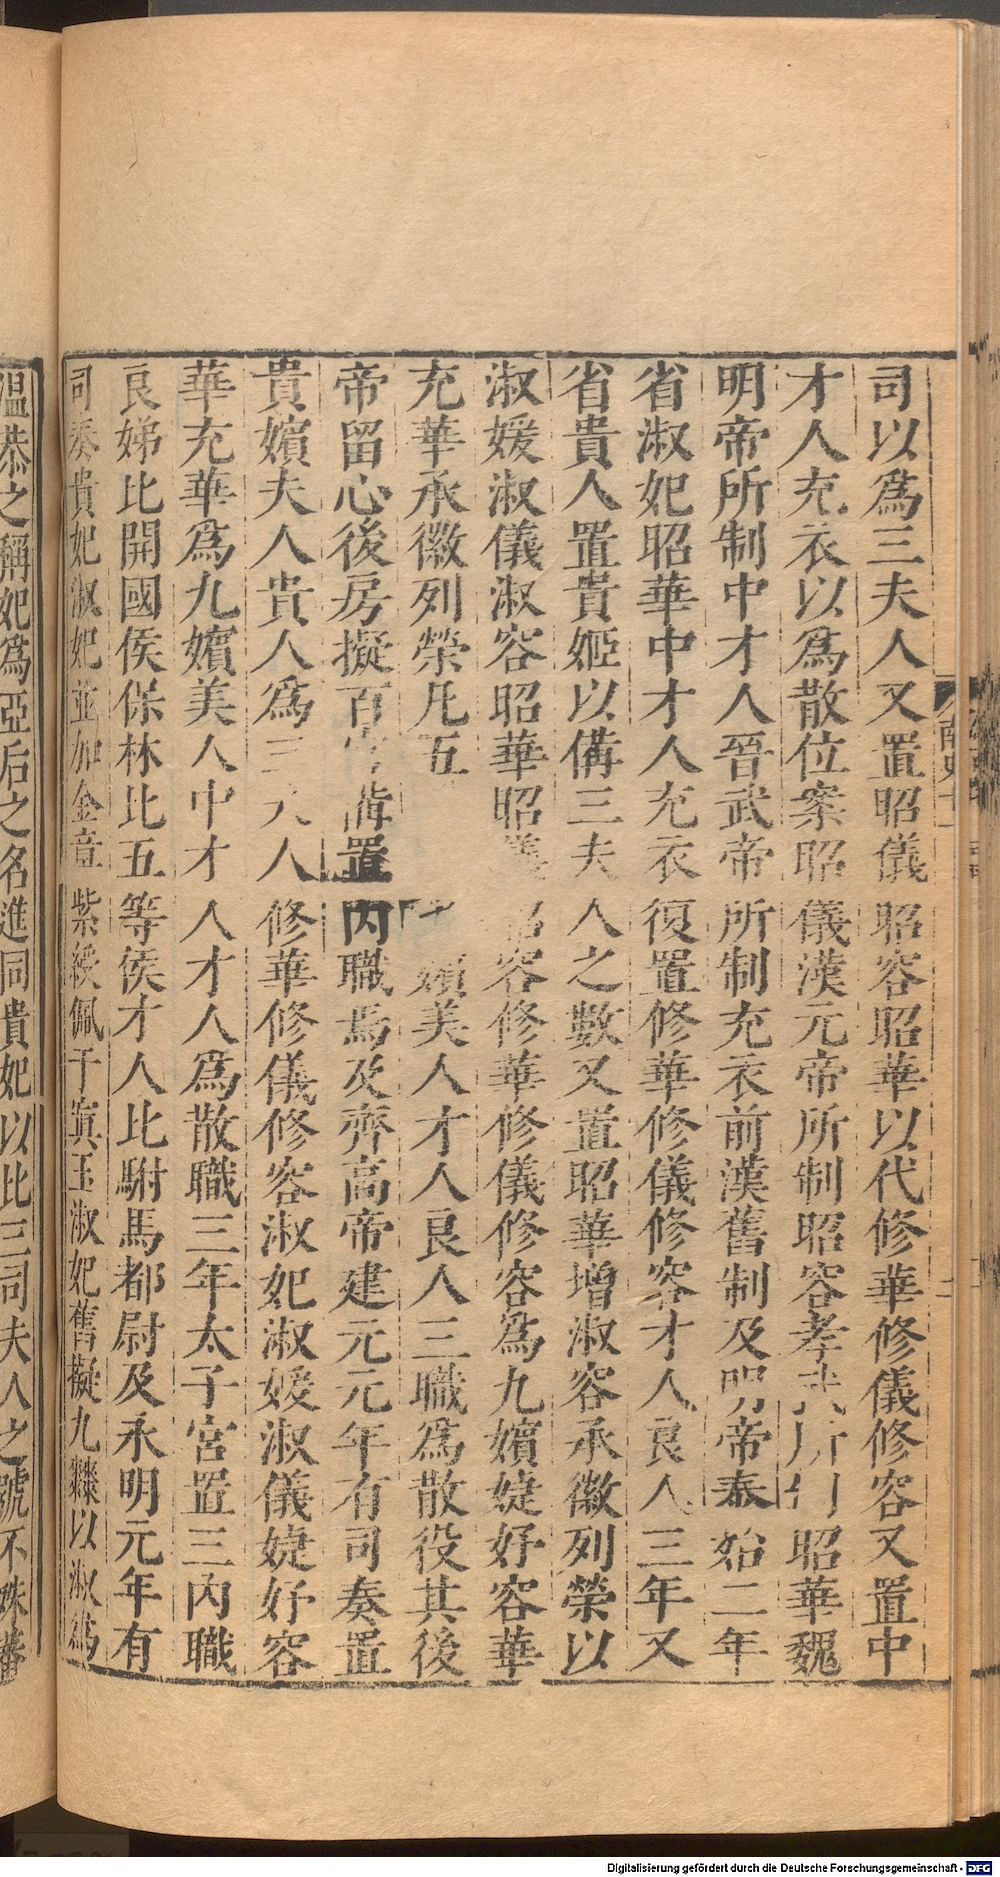 司以爲三夫人又置昭儀昭容昭華以代修華修儀修容又置中
才人充衣以爲散位案昭儀漢元帝所制昭容孝武所制昭華魏
明帝所制中才人晉武帝所制充衣前漢舊制及明帝泰始二年
省淑妃昭華中才人充衣復置修華修儀修容才人良人三年又
省貴人置貴姬以備三夫人之數又置昭華增淑容承徽列榮以
淑媛淑儀淑容昭華昭儀昭容修華修儀修容爲九嬪婕妤容華
充華承徽列榮凡五職班亞九嬪美人才人良人三職爲散役其後
帝留心後房擬百官備置內職焉及齊高帝建元元年有司奏置
貴嬪夫人貴人爲三夫人修華修儀修容淑妃淑媛淑儀婕妤容
華充華爲九嬪美人中才人才人爲散職三年太子宮置三內職
良娣比開國侯保林比五等侯才人比駙馬都尉及永明元年有
司奏貴妃淑妃並加金章紫綬佩于窴玉淑妃舊擬九棘以淑爲
溫恭之稱妃爲亞后之名進同貴妃以比三司夫人之號不殊蕃
南史十一
二
Digitalisierung gefördert durch die Deutsche Forschungsgemeinschaft - DFG